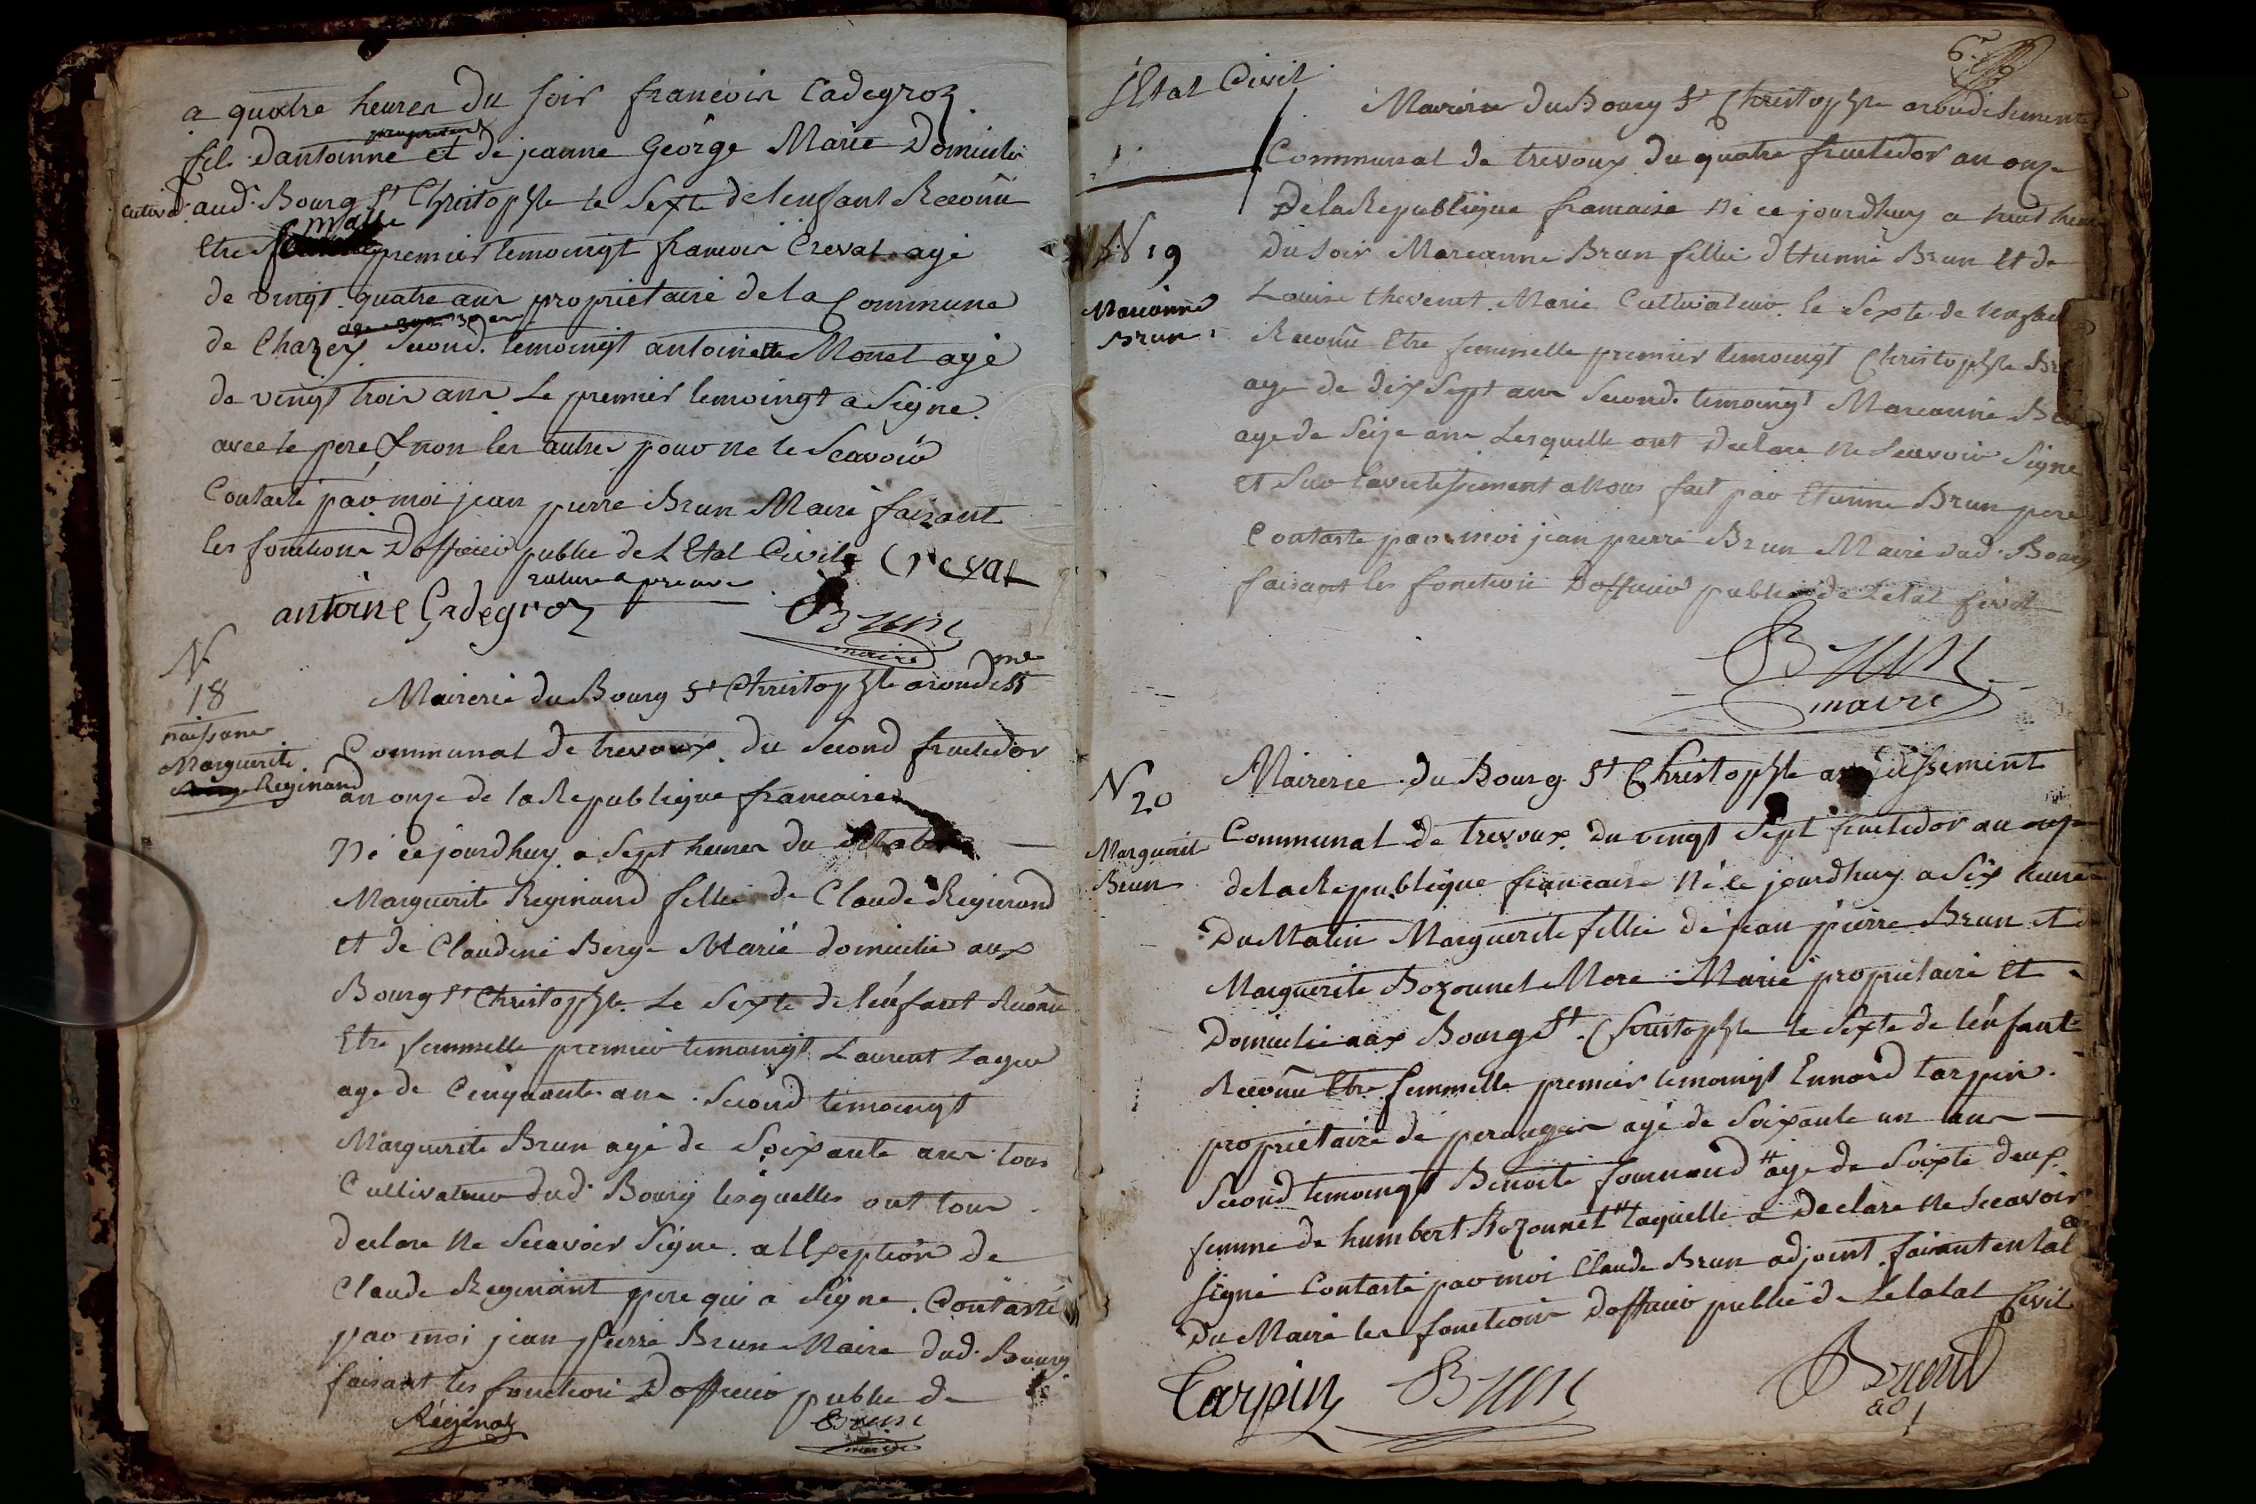 a quatre heures du soir francois Cadegroz
fils dantoinne et de jeanne George Marie Domicile
cultivr aud. Bourg St Christophle le Sexte de lenfant Reconu
malle
Etre premier temoingt francois Crevat agé
de vingt quatre ans propriétaire de la Commune
de Chazey Second temoingt antoinette Monet agé
de vingt trois ans Le premier temoingt a Signe
avec le pere & non les autres pour ne le Scavoir
Contasté par moi jean pierre Brun Maire faisant
les fonctions Dofficier public de LEtat Civile Crevat
rature aprouve
antoine Cadegroz Brun
maire
N
18
naissance
Marguerite
Reginand
Mairerie du Bourg St Christophle arondisme
Communal de trevoux du Second fructidor
an onze de la Republique francaise
Né ce jourdhuy a Sept heures du
Marguerite Reginand fellie de Claude Reginand
et de Claudine Berge Marié domicilie aux
Bourg St Christophle Le Sexte de lenfant Reconu
Etre femmelle premier temoingt Laurent Lague
age de Cinquante ans Second temoingt
Marguerite Brun agé de Soixante ans tous
Cultivateur dud. Bourg lesquelles ont tous
declare ne Scavoir Signe a lExeption de
Claude Reginant pere qui a Signe. Contasté
par moi jean pierre Brun Maire dud. Bourg
faisant les fonction Dofficier public de
Réginat Brun
maire
6
lEtat Civil
Mairerie Du Bourg St Christophle arondisement
Communal de trevoux du quatre fructidor an onze
De la Republique francaise Né ce jourdhuy a huit heures
N 19
du Soir Marianne Brun fellie dEtienne Brun Et de
Marianne
Brun
Louise thevenet Marie Cultivateur le Sexte de lenfant
Reconu Etre femmelle premier temoingt Christophle
age de dix Sept ans Second temoingt Marianne
age de Seize ans Lesquelle ont Declare ne Scavoir Signe
et Sur lavertissement a Nous fait par Etienne Brun pere
Contasté par moi jean pierre Brun Maire dud. Bourg
faisant les fonction Dofficier public de Letat Civil
Brun
maire
N
20
Marguerit
Brun
Mairerie du Bourg St Christophle
Communal de trevoux Du vingt Sept fructidor an onze
de la Republique francaise Né ce jourdhuy a Six heures
Du Matin Marguerite fellie de jean pierre Brun et de
Marguerite Bozonnet Mere Marié propriétaire Et
Domicilie aux Bourg St Christophle le Sexte de lenfant
Reconu Etre femmelle premier temoingt Ennard tarpin
propriétaire de perouges agé de Soixante un ans
Second temoingt Benoite fournand # age de Soixte deux
femme de humbert Bozonnet # laquelle a Declare ne Scavoir
Signé Contasté par moi Claude Brun adjoint faisant en lab
Du Maire les fonction Dofficier public de Letatat Civil
Tarpin Brun Brun
adj